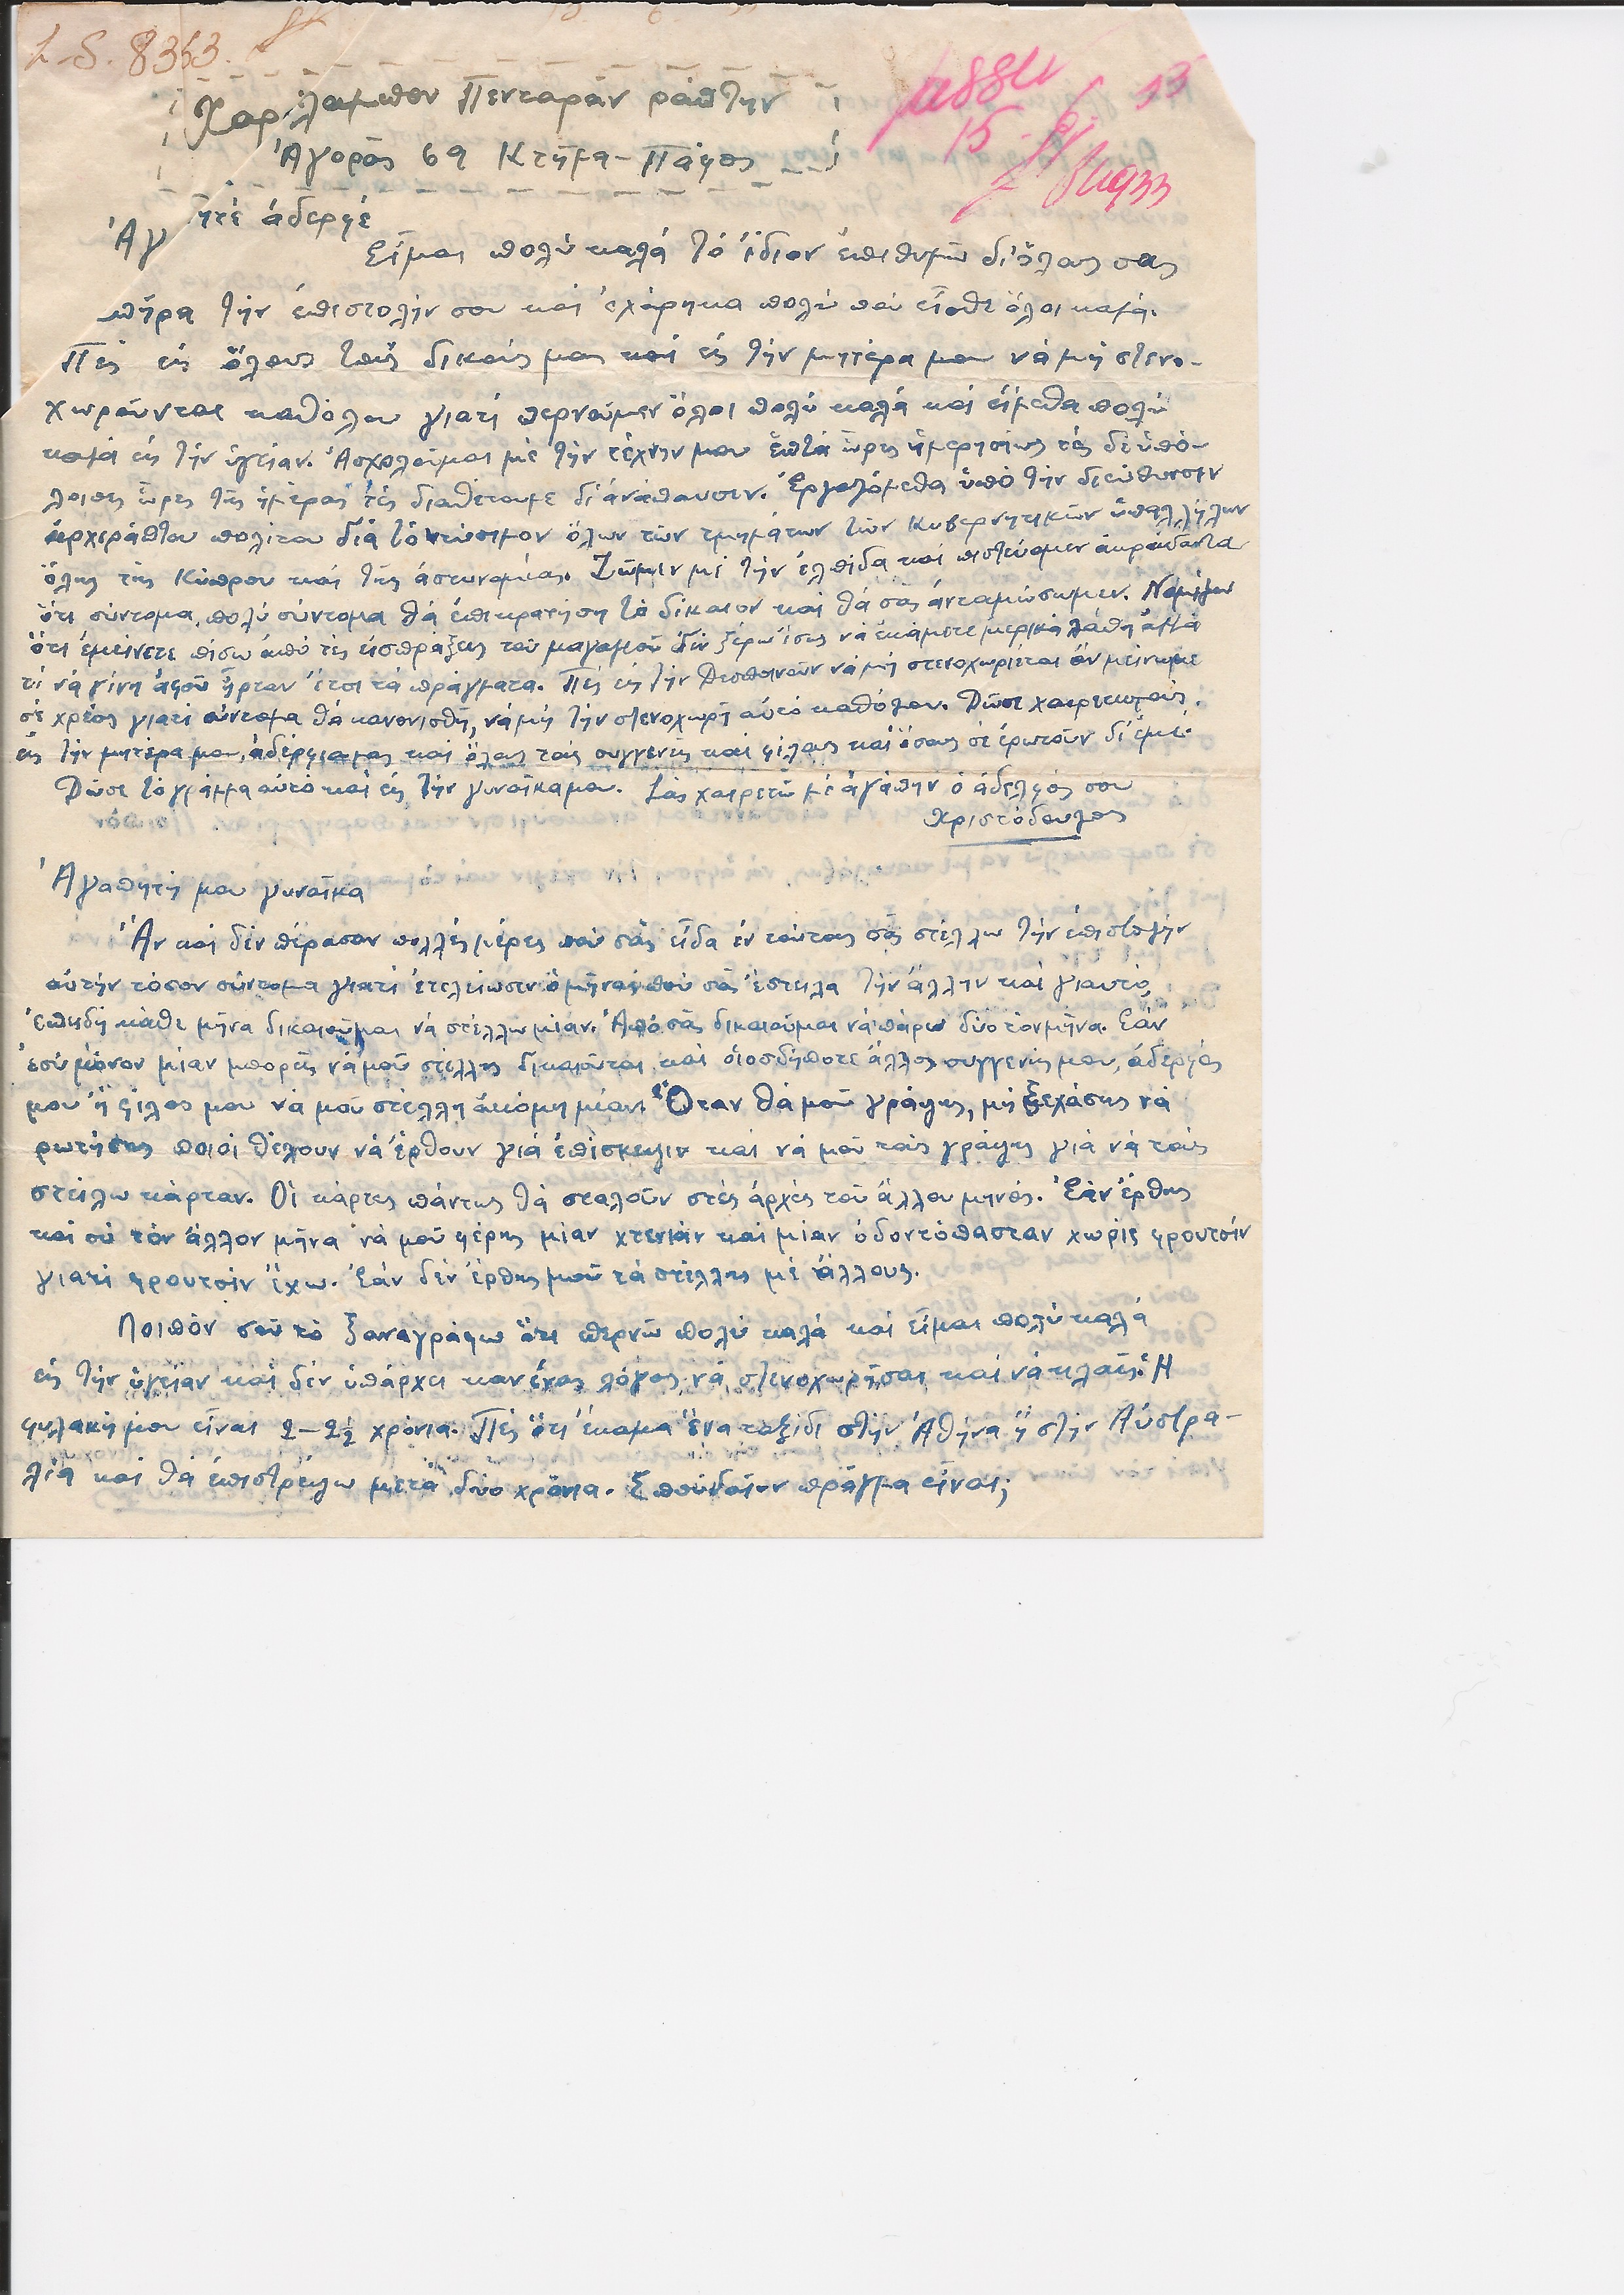 L.S. 8363.
Χαρ λαμπον Πενταρᾶν ράπτην
Ἀγορᾶς 69 Κτῆμα - Πάφος
15
55
Ἀγ ητέ ἀδερφέ
Εἶμαι πολύ καλά τό ἴδιον ἐπιθυμῶ δι' ὅλους σας
πῆρα τήν ἐπιστολήν σου καί ἐχάρηκα πολύ πού εἶσθε ὅλοι καλά.
Πές εἰς ὅλους τούς δικούς μου καί εἰς τήν μητέρα μου νά μή στενο-
χωροῦνται καθόλου γιατί περνοῦμεν ὅλοι πολύ καλά καί εἴμεθα πολύ
καλά εἰς τήν ὑγείαν. Ἀσχολοῦμαι μέ τήν τέχνην μου ἑπτά ὧρες ἡμερησίως τές δέ ὑπό-
λοιπες ὧρες τῆς ἡμέρας τές διαθέτουμε δι' ἀνάπαυσιν. Ἐργαζόμεθα ὑπό τήν διεύθυνσιν
ἀρχεράπτου πολίτου διά τό ντύσιμον ὅλων τῶν τμημάτων τῶν Κυβερνητικῶν ὑπαλλήλων
ὅλης τῆς Κύπρου καί τῆς ἀστυνομίας. Ζῶμεν μέ τήν ἐλπίδα καί πιστεύομεν ἀκράδαντα
ὅτι σύντομα, πολύ σύντομα θά ἐπικρατήση τό δίκαιον καί θά σᾶς ἀνταμώσωμεν. Νομίζω
ὅτι ἐμείνετε πίσω ἀπό τές εἰσπράξεις τοῦ μαγαζιοῦ δέν ξέρω ἴσως νά ἐκάμετε μερικά λάθη ἀλλά
τί νά γίνη ἀφοῦ ἦρταν ἔτσι τά πράγματα. Πές εἰς τήν Δεσποινοῦν νά μή στενοχωριέται ἄν μείνωμε
σέ χρέος γιατί σύντομα θά κανονισθῆ, νά μή τήν στενοχωρῆ αὐτό καθόλου. Δῶσε χαιρετισμούς
εἰς τήν μητέρα μου, ἀδέρφια μας καί ὅλους τούς συγγενεῖς καί φίλους καί ὅσους σέ ἐρωτοῦν δι' ἐμέ.
Δῶσε τό γράμμα αὐτό καί εἰς τήν γυναῖκα μου. Σᾶς χαιρετῶ μέ ἀγάπην ὁ ἀδελφός σου
Χριστόδουλος
Ἀγαπητή μου γυναῖκα
Ἄν καί δέν πέρασαν πολλές μέρες πού σᾶς εἶδα ἐν τούτοις σᾶς στέλλω τήν ἐπιστολήν
αὐτήν τόσον σύντομα γιατί ἐτελείωσεν ὁ μῆνας πού σᾶς ἔστειλα τήν ἄλλην καί γιαυτό,
ἐπειδή κάθε μῆνα δικαιοῦμαι νά στέλλω μίαν. Ἀπό σᾶς δικαιοῦμαι νά πάρω δύο τόν μῆνα. Ἐάν
ἐσύ μόνον μίαν μπορεῖς νά μοῦ στέλλης δικαιοῦται καί οἱοσδήποτε ἄλλος συγγενής μου, ἀδερφός
μου ἤ φίλος μου νά μοῦ στέλλη ἀκόμη μίαν. Ὅταν θά μοῦ γράψης, μή ξεχάσης νά
ρωτήσης ποιοί θέλουν νά ἔρθουν γιά ἐπίσκεψιν καί νά μοῦ τούς γράψης γιά νά τούς
στείλω κάρταν. Οἱ κάρτες πάντως θά σταλοῦν στές ἀρχές τοῦ ἄλλου μηνός. Ἐάν ἔρθης
καί σύ τόν ἄλλον μῆνα νά μοῦ φέρης μίαν χτενιάν καί μίαν ὀδοντόπασταν χωρίς φρουτσίν
γιατί φρουτσίν ἔχω. Ἐάν δέν ἔρθης μοῦ τά στέλλης μέ ἄλλους.
Λοιπόν σοῦ τό ξαναγράφω ὅτι περνῶ πολύ καλά καί εἶμαι πολύ καλά
εἰς τήν ὑγείαν καί δέν ὑπάρχει κανένας λόγος νά στενοχωρῆσαι καί νά κλαῖς. Ἡ
φυλακή μου εἶναι 2 - 2½ χρόνια. Πές ὅτι ἔκαμα ἕνα ταξίδι στήν Ἀθήνα ἤ στήν Αὐστρα-
λία καί θά ἐπιστρέψω μετά δύο χρόνια. Σπουδαῖον πρᾶγμα εἶναι;